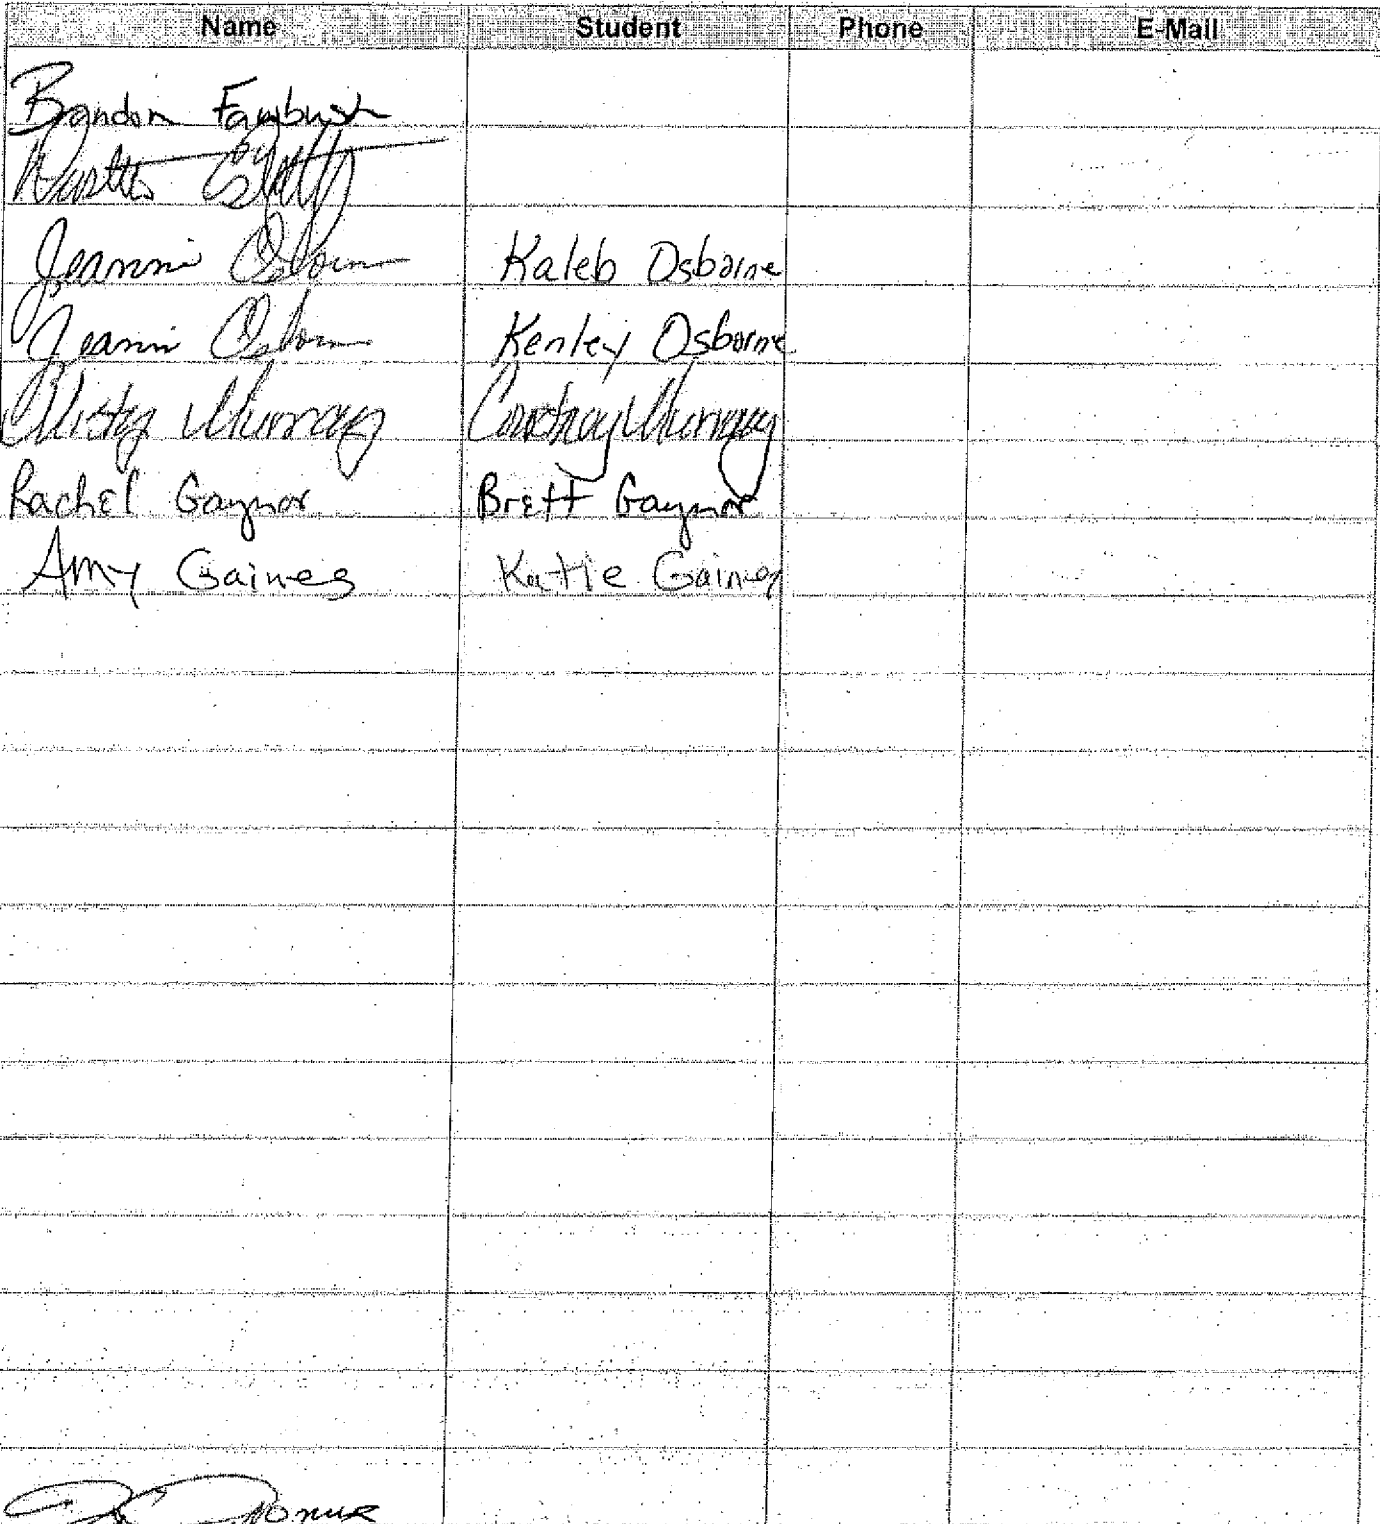 Name Student Phone E-Mail
Brandon
Jeanni Osborn Kaleb Osborne
Jeanni Osborn Kenley Osborne
Misty Murray Courtney Murray
Rachel Gaynor Brett Gaynor
Amy Gaines Katie Gaines